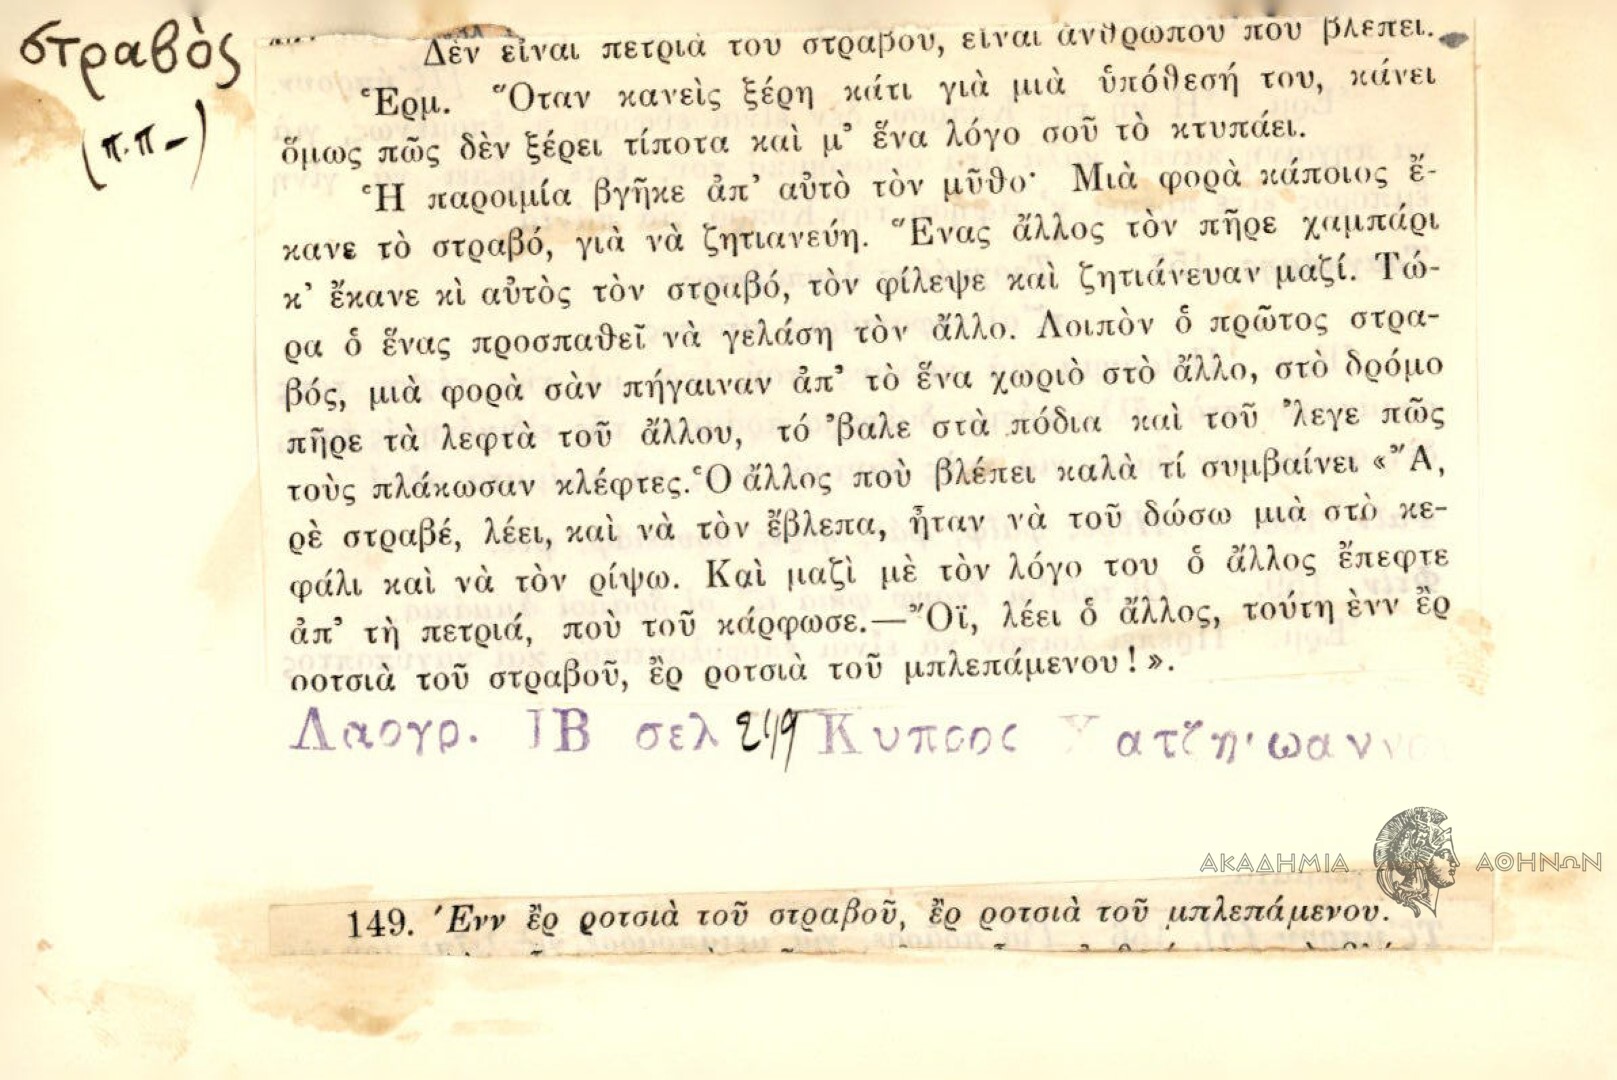 στραβὸς
(π.π-)
Δὲν εἶναι πετριὰ τοῦ στραβοῦ, εἶναι ἀνθρώπου ποὺ βλέπει.
Ἑρμ. Ὅταν κανεὶς ξέρη κάτι γιὰ μιὰ ὑπόθεσή του, κάνει
ὅμως πῶς δὲν ξέρει τίποτα καὶ μ’ ἕνα λόγο σοῦ τὸ κτυπάει.
Ἡ παροιμία βγῆκε ἀπ’ αὐτὸ τὸν μῦθο· Μιὰ φορὰ κάποιος ἔ-
κανε τὸ στραβό, γιὰ νὰ ζητιανεύη. Ἕνας ἄλλος τὸν πῆρε χαμπάρι
κ’ ἔκανε κὶ αὐτὸς τὸν στραβό, τὸν φίλεψε καὶ ζητιάνευαν μαζί. Τώ-
ρα ὁ ἕνας προσπαθεῖ νὰ γελάση τὸν ἄλλο. Λοιπὸν ὁ πρῶτος στρα-
βός, μιὰ φορὰ σὰν πήγαιναν ἀπ’ τὸ ἕνα χωριὸ στὸ ἄλλο, στὸ δρόμο
πῆρε τὰ λεφτὰ τοῦ ἄλλου, τό ’βαλε στὰ πόδια καὶ τοῦ ’λεγε πῶς
τοὺς πλάκωσαν κλέφτες. Ὁ ἄλλος ποὺ βλέπει καλὰ τί συμβαίνει «Ἄ,
ρὲ στραβέ, λέει, καὶ νὰ τὸν ἔβλεπα, ἦταν νὰ τοῦ δώσω μιὰ στὸ κε-
φάλι καὶ νὰ τὸν ρίψω. Καὶ μαζὶ μὲ τὸν λόγο του ὁ ἄλλος ἔπεφτε
ἀπ’ τὴ πετριά, ποὺ τοῦ κάρφωσε.—Ὄϊ, λέει ὁ ἄλλος, τούτη ὲνν ἒρ
ροτσιὰ τοῦ στραβοῦ, ἒρ ροτσιὰ τοῦ μπλεπάμενου!».
Λαογρ. ΙΒ σελ 249 Κυπρος Χατζηιωανν
ΑΚΑΔΗΜΙΑ ΑΘΗΝΩΝ
149. Ἐνν ἒρ ροτσιὰ τοῦ στραβοῦ, ἒρ ροτσιὰ τοῦ μπλεπάμενου.